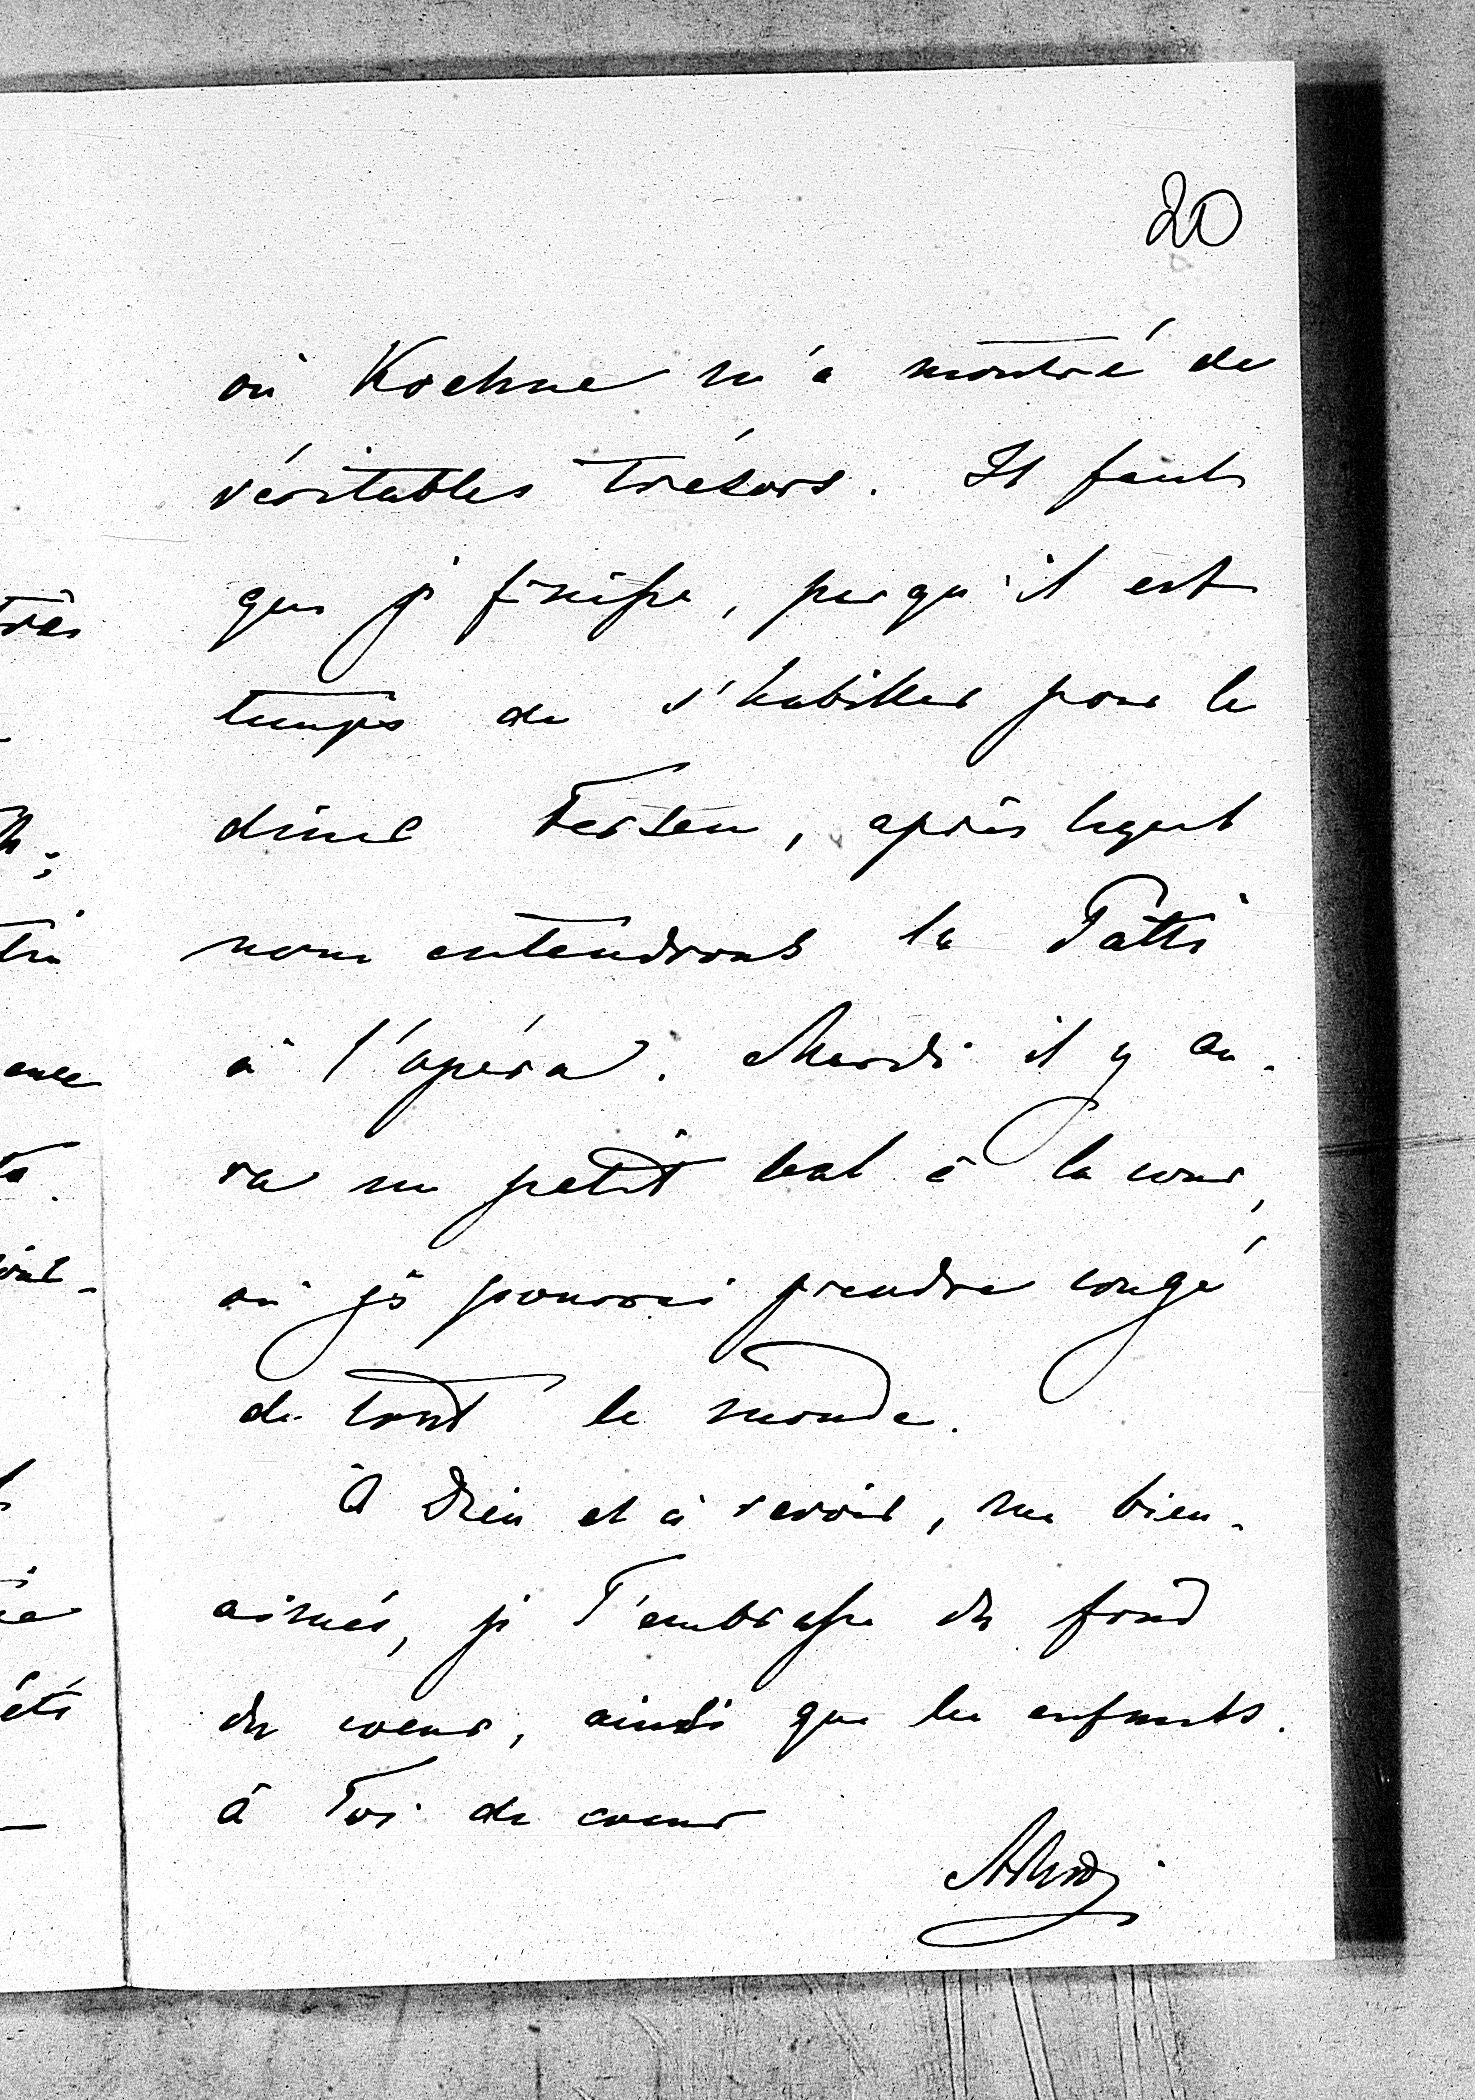 20
où Koehne m'a montré de
véritables trésors. Il faut
que je finisse, parqu'il est
temps de s'habiller pour le
diner Fersen, après lequel
nous entendrons la Patti
à l'opéra. Mardi il y au-
ra un petit bal à la cour,
où je pourrai prendre congé
de tout le monde.
A Dieu et à revoir, ma bien-
aimée, je T'embrasse du fond
du coeur, ainsi que les enfants.
à Toi de coeur
très
avec
été